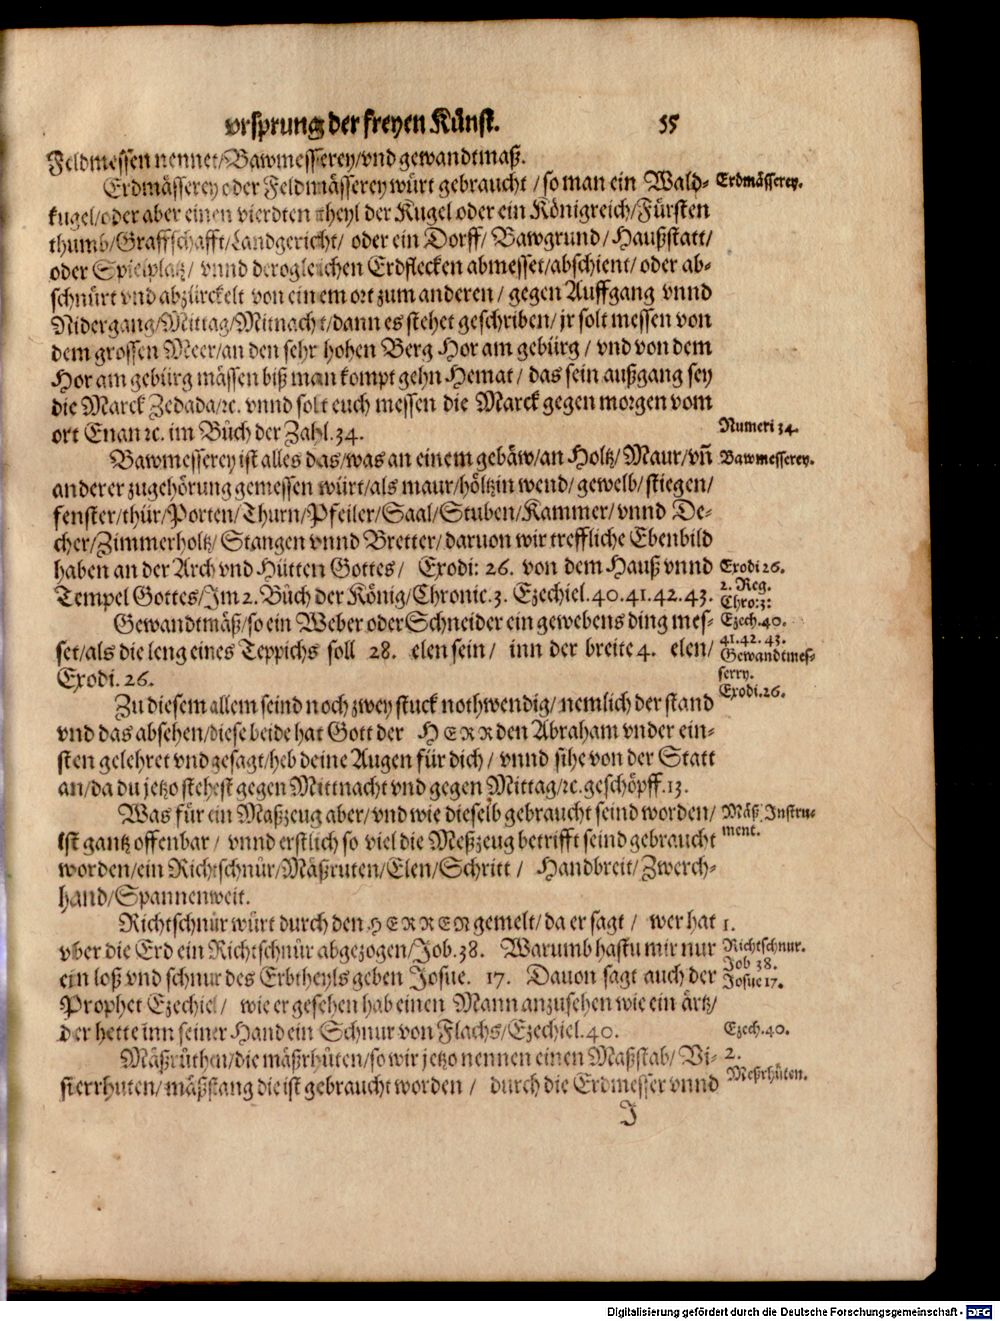 vrsprung der freyen Künst. 55
Feldmessen nennet/Bawmesserey/vnd gewandtmaß.
Erdmässerey oder Feldmässerey würt gebraucht / so man ein Wald- Erdmässerey.
kugel/oder aber einen vierdten theyl der Kugel oder ein Königreich/Fürsten
thumb/Graffschafft/Landgericht/ oder ein Dorff/ Bawgrund/ Haußstatt/
oder Spielplatz/ vnnd derogleichen Erdflecken abmesset/abschient/ oder ab-
schnürt vnd abzürckelt von einem ort zum anderen / gegen Auffgang vnnd
Nidergang/Mittag/Mitnacht/dann es stehet geschriben/ jr solt messen von
dem grossen Meer/an den sehr hohen Berg Hor am gebürg / vnd von dem
Hor am gebürg mässen biß man kompt gehn Hemat / das sein außgang sey
die Marck Zedada/ꝛc. vnnd solt euch messen die Marck gegen morgen vom
ort Enan ꝛc. im Büch der Zahl.34. Numeri 34.
Bawmesserey ist alles das/was an einem gebäw/an Holtz/Maur/vñ Bawmesserey.
anderer zugehörung gemessen würt/als maur/höltzin wend/gewelb/stiegen/
fenster/thür/Porten/Thurn/Pfeiler/Saal/Stuben/Kammer/ vnnd De-
cher/Zimmerholtz/ Stangen vnnd Bretter/ daruon wir treffliche Ebenbild
haben an der Arch vnd Hütten Gottes/ Exodi: 26. von dem Hauß vnnd Exodi 26.
Tempel Gottes/Jm 2. Büch der König/Chronic.3. Ezechiel.40.41.42.43. 2. Reg.
Chro:3:
Gewandtmäß/so ein Weber oder Schneider ein gewebens ding mes- Ezech.40.
41.42.43.
set/als die leng eines Teppichs soll 28. elen sein/ inn der breite 4. elen/ Gewandtmes-
serry.
Exodi. 26.
Exodi.26.
Zu diesem allem seind noch zwey stuck nothwendig/ nemlich der stand
vnd das absehen/diese beide hat Gott der HERR den Abraham vnder ein-
sten gelehret vnd gesagt/heb deine Augen für dich/ vnnd sihe von der Statt
an/da du jetzo stehest gegen Mittnacht vnd gegen Mittag/ꝛc.geschöpff.13.
Was für ein Maßzeug aber/vnd wie dieselb gebraucht seind worden/ Mäß Instru-
ment.
ist gantz offenbar / vnnd erstlich so viel die Meßzeug betrifft seind gebraucht
worden/ein Richtschnür/Mäßruten/Elen/Schritt / Handbreit/Zwerch-
hand/Spannenweit.
Richtschnür würt durch den HERREN gemelt/da er sagt / wer hat 1.
vber die Erd ein Richtschnür abgezogen/Job.38. Warumb hastu mir nur Richtschnur.
Job 38.
ein loß vnd schnur des Erbtheyls geben Josue. 17. Dauon sagt auch der Josue 17.
Prophet Ezechiel/ wie er gesehen hab einen Mann anzusehen wie ein ärtz/
der hette inn seiner Hand ein Schnur von Flachs/Ezechiel.40. Ezech.40.
Mäßrüthen/die mäßrhüten/so wir jetzo nennen einen Maßstab/ Vi- 2.
Meßrhüten.
sterrhuten/mäßstang die ist gebraucht worden / durch die Erdmesser vnnd
J
Digitalisierung gefördert durch die Deutsche Forschungsgemeinschaft - DFG